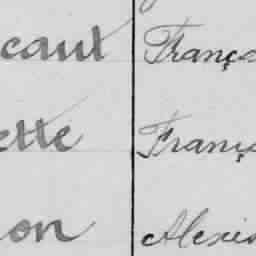 caut Franço
ette Franç
on Alexis